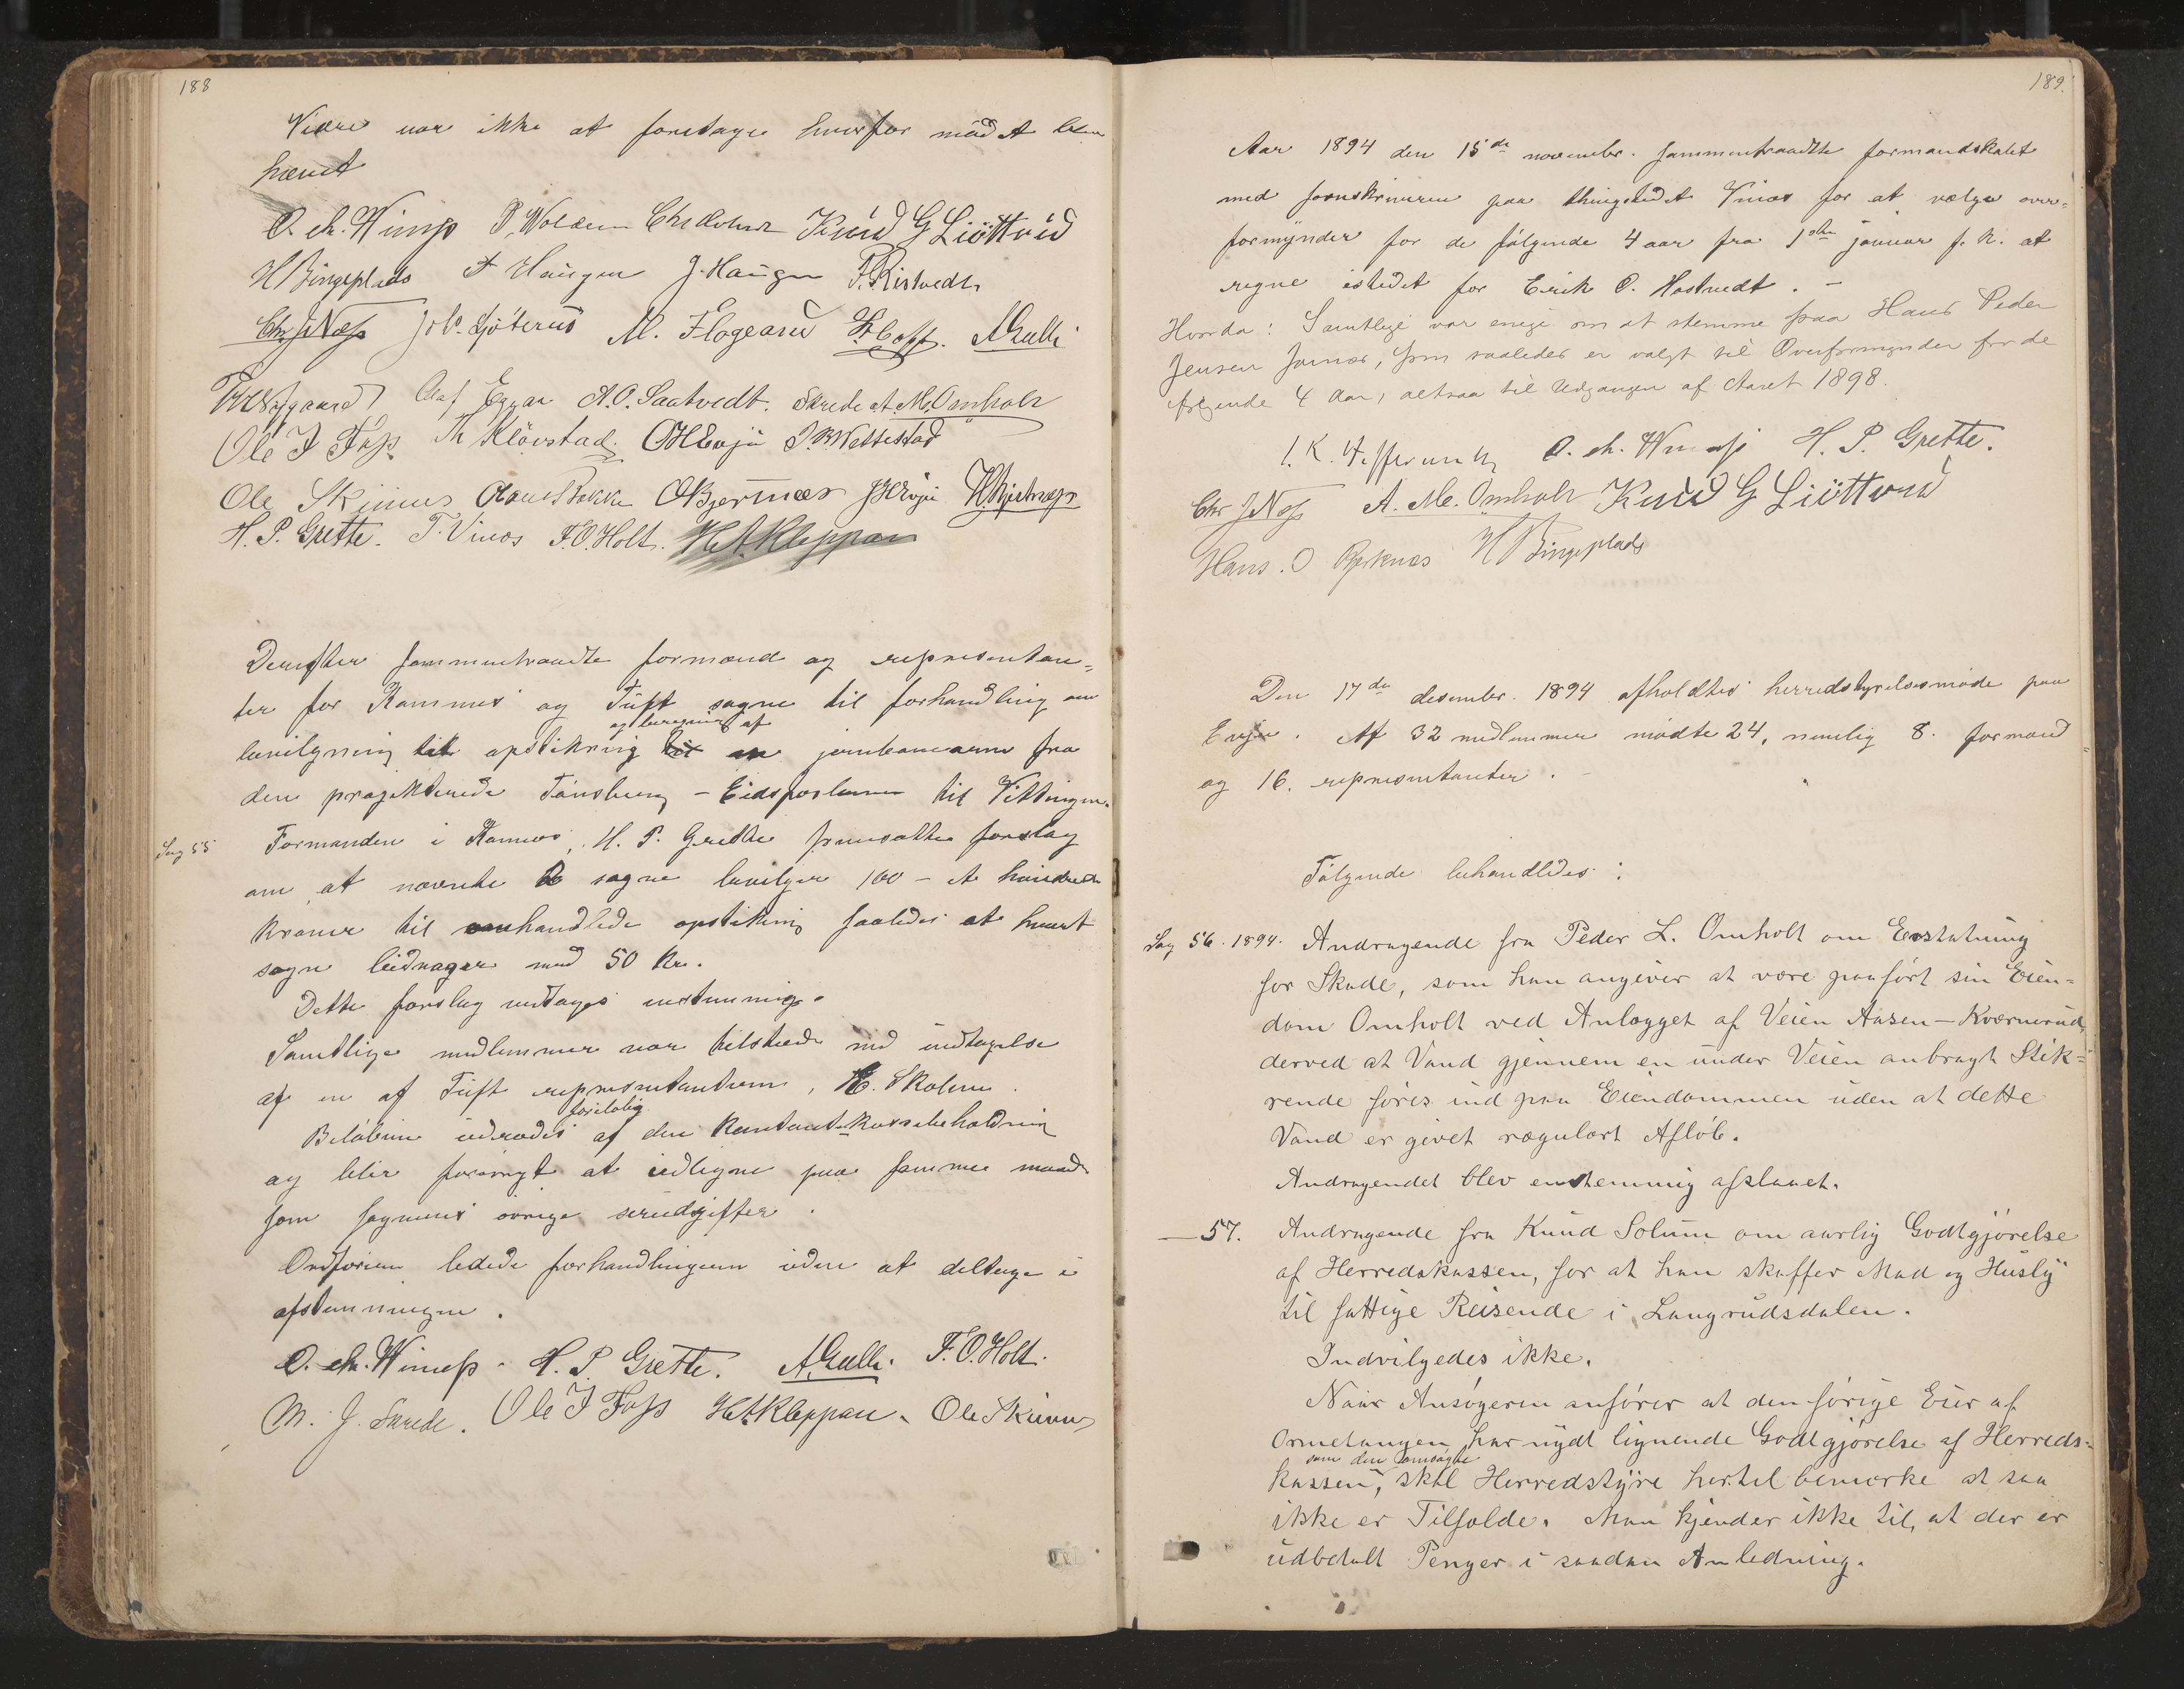 188
Videre var ikke at foretage hvorfor mødet blev
hævet
O. Chr. Wimes P. Wolden Knud G Liöttvid
H Bingeplads Haugen J. Haugen F. Ristvedt
Chr J Næss Joh. M. Flogeland A Gulli
A. O. Saatvedt. Skrede A. M. Omholt
Ole J Foss Th Klövstad. O H Evju
Ole Skinnes O Bjernæs J H Evju
H. P. Grette. T. Vinæs F. O. Holt. H A Kleppan
Derefter sammentraadte formænd og repræsentan-
ter for Komnes og Tuft sogne til forhandling om
og beregning af
bevilgning til opstikning jernbanearm fra
den projekterede Tønsberg - Eidsfosbane til Vittingen.
Sag 55 Formanden i Komnes, H. P. Grette fremsatte forslag
om at nævnte 2 sogne bevilger 100 - et hundrede
kroner til omhandlede opstikning saaledes at hvert
sogn bidrager med 50 kr.
Dette forslag vedtages enstemmig.
Samtlige medlemmer var tilstede med undtagelse
af en af Tuft repræsentanter, H. Skolem.
foreløbig
Beløbene udredes af den kontante kassebeholdning
og blir forøvrigt at udligne paa samme maade
som sognenes øvrige særudgifter.
Ordføreren ledede forhandlingen uden at deltage i
afstemningen.
O. Chr. Wimes. H. P. Grette. A. Gulli. F. O. Holt.
M. J. Skrede. Ole J Foss H A Kleppan. Ole Skinnes
189.
Aar 1894 den 15de november. sammentraadte formandskabet
med sorenskriveren paa thingstedet Vinæs for at vælge over-
formynder for de følgende 4 aar fra 1ste januar f. k. at
regne istedet for Erik O. Hostvedt. -
Hvorda: Samtlige var enige om at stemme paa Hans Peder
Jensen Jornæs, som saaledes er valgt til Overformynder for de
følgende 4 Aar, altsaa til Udgangen af Aaret 1898.
O. Chr. Wimes H. P. Grette.
Chr J Næss A. M. Omholt Knud G Liöttvid
Hans. O Bjerknes H Bingeplads
Den 17de desember. 1894 afholdtes herredstyrelsesmøde paa
Evju. Af 32 medlemmer mødte 24, nemlig 8. formænd
og 16. repræsentanter.
Følgende behandledes:
Sag 56. 1894. Andragende fra Peder L. Omholt om Erstatning
for Skade, som han angiver at være paaført sin Eien-
dom Omholt ved Anlægget af Veien Aasen - Kværnerud,
derved at Vand gjennem en under Veien anbragt Stik-
rende føres ind paa Eiendommen uden at dette
Vand er givet regulært Afløb.
Andragendet blev enstemmig afslaaet.
— 57. Andragende fra Knud Solum om aarlig Godtgjørelse
af Herredskassen, for at han skaffer Mad og Husly
til fattige Reisende i Langrudsdalen.
Indvilgedes ikke.
Naar Ansøgeren anfører at den forige Eier af
Ormetangen har nydt lignende Godtgjørelse af Herreds-
som den omsøgte
kassen, skal Herredstyre hertil bemærke at saa
ikke er Tilfælde. Man kjender ikke til, at der er
udbetalt Penger i saadan Anledning.